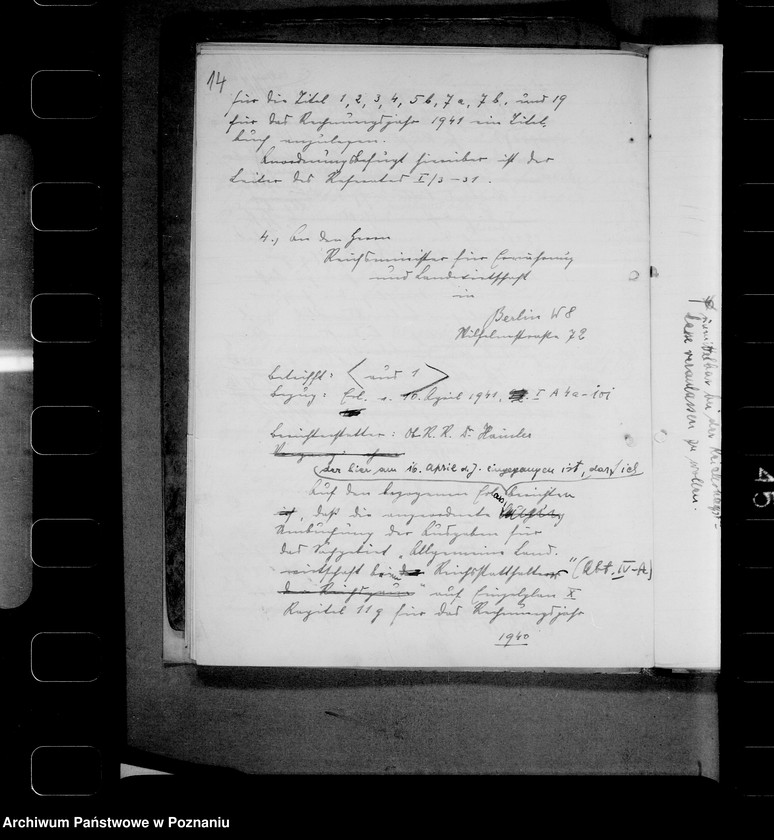 14
für die Titel 1, 2, 3, 4, 5b, 7a, 7b, und 19
für das Rechnungsjahr 1941 ein Titel-
buch anzulegen.
Anordnungsbefugt hierüber ist der
Leiter des Referates I/3-31.
4., An den Herrn
Reichsminister für Ernährung
und Landwirtschaft
in
Berlin W 8
Wilhelmstraße 72
Betrifft: < aus 1 >
Bezug: Erl. v. 10. April 1941, I A 4a-
Berichterstatter: O.R.R. Dr.
(der hier am 16. April d.J. eingegangen ist, darf ich
Auf den bezogenen Erlass berichten
, daß die angeordnete
Umbuchung der Ausgaben für
das Sachgebiet „Allgemeine Land-
wirtschaft beim Reichsstatthalter" (Abt. IV-A)
auf Einzelplan X
Kapitel 11g für das Rechnungsjahr
1940
unmittelbar bei der
dann veranlassen zu wollen.
45
Archiwum Państwowe w Poznaniu